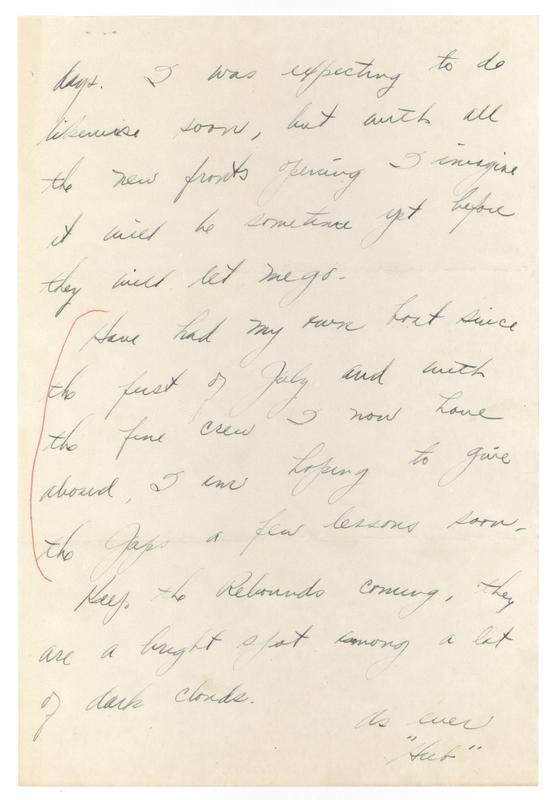 days. I was expecting to do
likewise soon, but with all
the new fronts opening I imagine
it will be sometime yet before
they will let me go.
Have had my own boat since
the first of July and with
the fine crew I now have
aboard, I am hoping to give
the Japs a few lessons soon.
Keep the Rebounds coming, they
are a bright spot among a lot
of dark clouds.
As ever
"Hub"